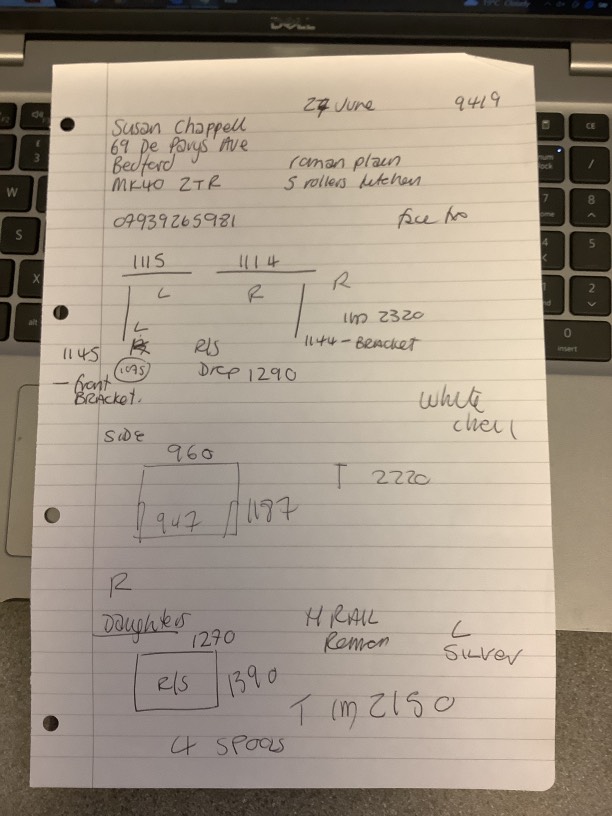 DELL
27 June 9419
Susan Chappell
69 De Parys Ave
Bedford roman plain
MK40 2TR 5 rollers kitchen
07939265981 face
1115 1114
L R R
L
1m 2320
1145 R/S 1144 - BRACKET
1095 Drop 1290
- front
BRACKET.
White
SIDE
960
T 2220
947 1187
R
Daughters H RAIL L
1270 Roman Silver
R/S 1390
T 1m 2150
4 SPOOLS